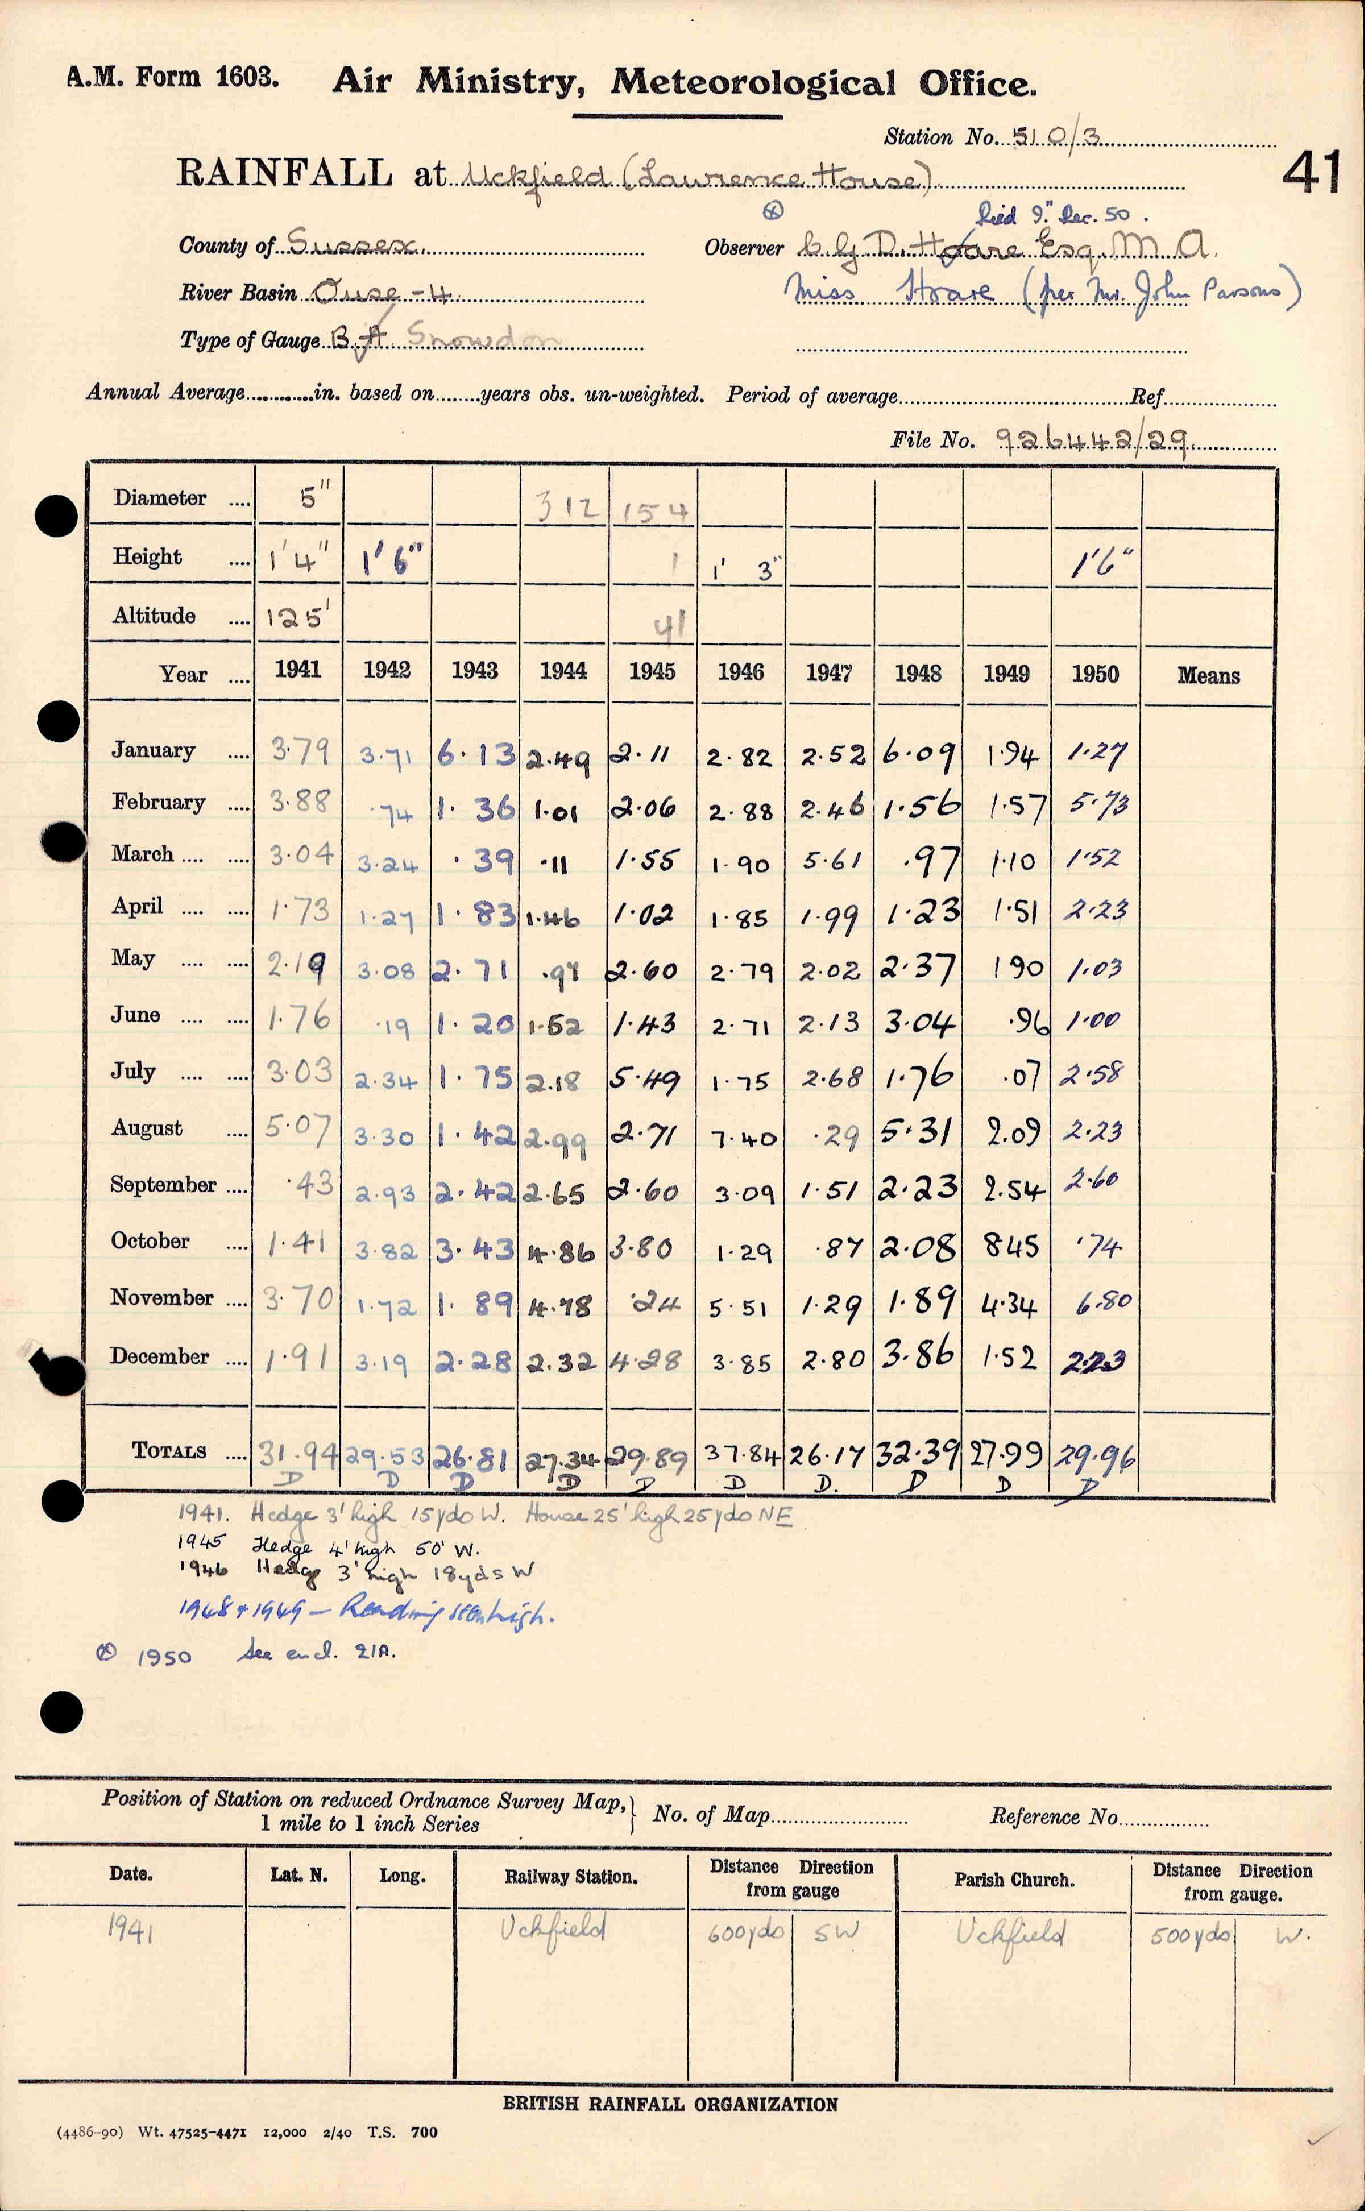 A.M. Form 1603. Air Ministry, Meteorological Office.
Station No. 510/3
41
RAINFALL at Uckfield (Lawrence House)
Died 9th Dec. 50.
County of Sussex. Observer C G D. Hoare Esq. M A.
River Basin Ouse - 4 Miss Hoare (per Mr. John Parsons)
Type of Gauge B.A. Snowdon
Annual Average............in. based on........years obs. un-weighted. Period of average........Ref........
File No. 926442/29
Diameter .... 5" 312 154
Height .... 1'4" 1'6" 1 1' 3" 1'6"
Altitude .... 125' 41
Year .... 1941 1942 1943 1944 1945 1946 1947 1948 1949 1950 Means
January .... 3.79 3.71 6.13 2.49 2.11 2.82 2.52 6.09 1.94 1.27
February .... 3.88 .74 1.36 1.01 2.06 2.88 2.46 1.56 1.57 5.73
March .... .... 3.04 3.24 .39 .11 1.55 1.90 5.61 .97 1.10 1.52
April .... .... 1.73 1.27 1.83 1.46 1.02 1.85 1.99 1.23 1.51 2.23
May .... .... 2.19 3.08 2.71 .97 2.60 2.79 2.02 2.37 1 90 1.03
June .... .... 1.76 .19 1.20 1.52 1.43 2.71 2.13 3.04 .96 1.00
July .... .... 3.03 2.34 1.75 2.18 5.49 1.75 2.68 1.76 .07 2.58
August .... 5.07 3.30 1.42 2.99 2.71 7.40 .29 5.31 2.09 2.23
September .... .43 2.93 2.42 2.65 2.60 3.09 1.51 2.23 2.54 2.60
October .... 1.41 3.82 3.43 4.86 3.80 1.29 .87 2.08 845 .74
November .... 3.70 1.72 1.89 4.78 .24 5.51 1.29 1.89 4.34 6.80
December .... 1.91 3.19 2.28 2.32 4.28 3.85 2.80 3.86 1.52 2.23
TOTALS .... 31.94 29.53 26.81 27.34 29.89 37.84 26.17 32.39 27.99 29.96
D D D D D D D. D D D
1941. Hedge 3' high 15yds W. House 25' high 25yds NE
1945 Hedge 4' high 50' W.
1946 Hedge 3' high 18yds W
1948 & 1949 – Reading high.
1950 See encl. 21A.
Position of Station on reduced Ordnance Survey Map, No. of Map........ Reference No........
1 mile to 1 inch Series
Date. Lat. N. Long. Railway Station. Distance Direction from gauge Parish Church. Distance Direction from gauge.
1941 Uckfield 600yds SW Uckfield 500yds W.
BRITISH RAINFALL ORGANIZATION
(4486-90) Wt. 47525-4471 12,000 2/40 T.S. 700